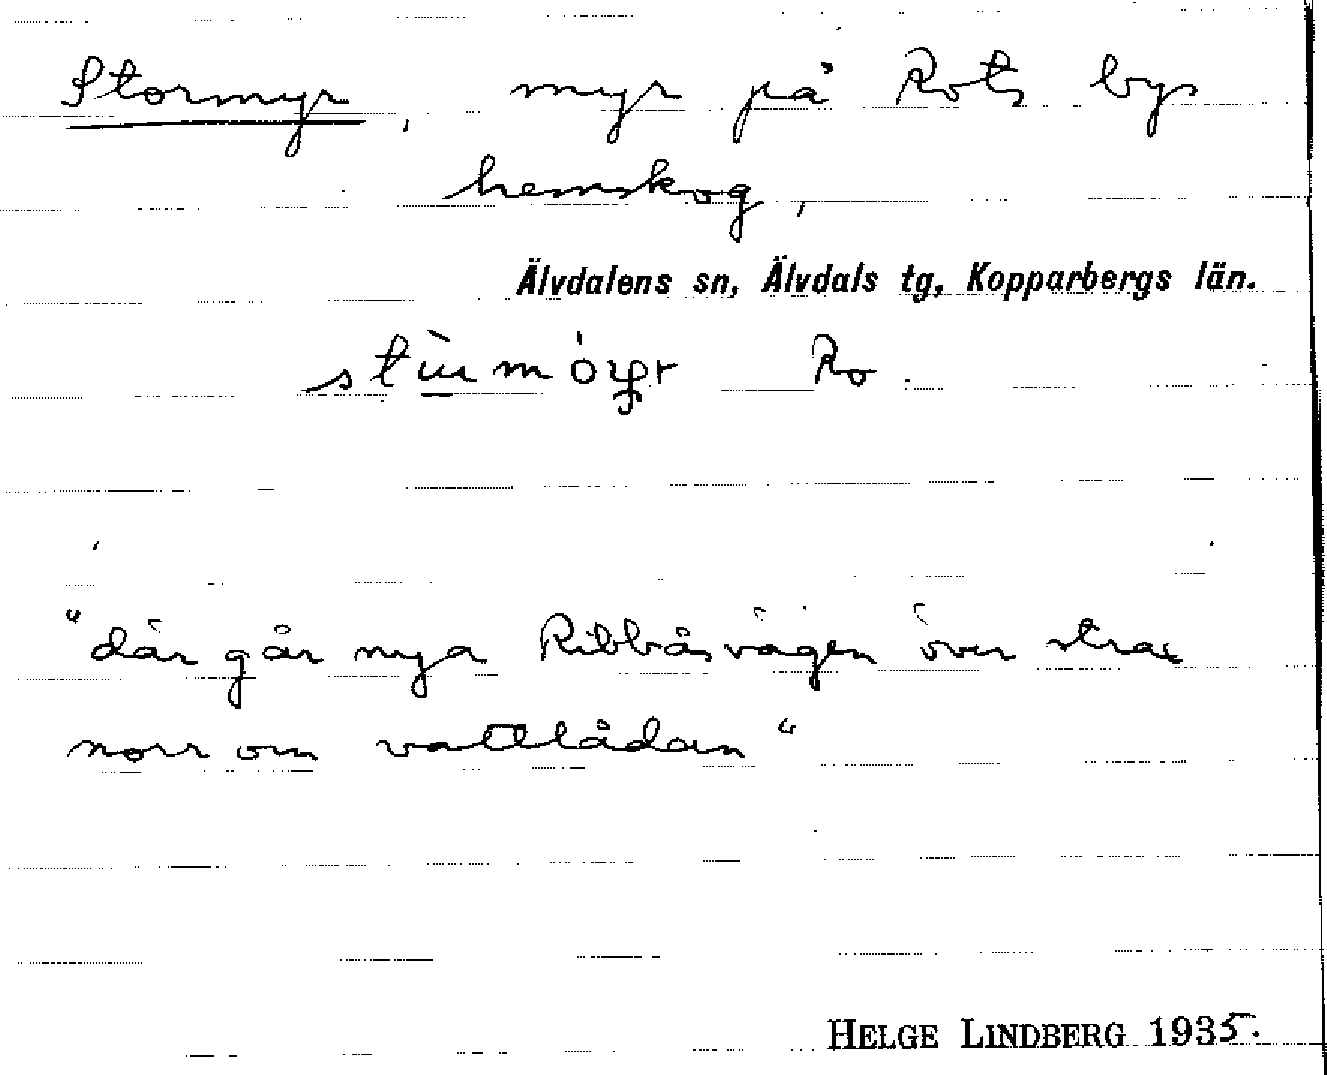 Stormyr, myr på Rots bys
hemskog,
Älvdalens sn, Älvdals tg, Kopparbergs län.
Ro
"där går nya Ribbåsvägen över strax
norr om vattlådan"
HELGE LINDBERG 1935.